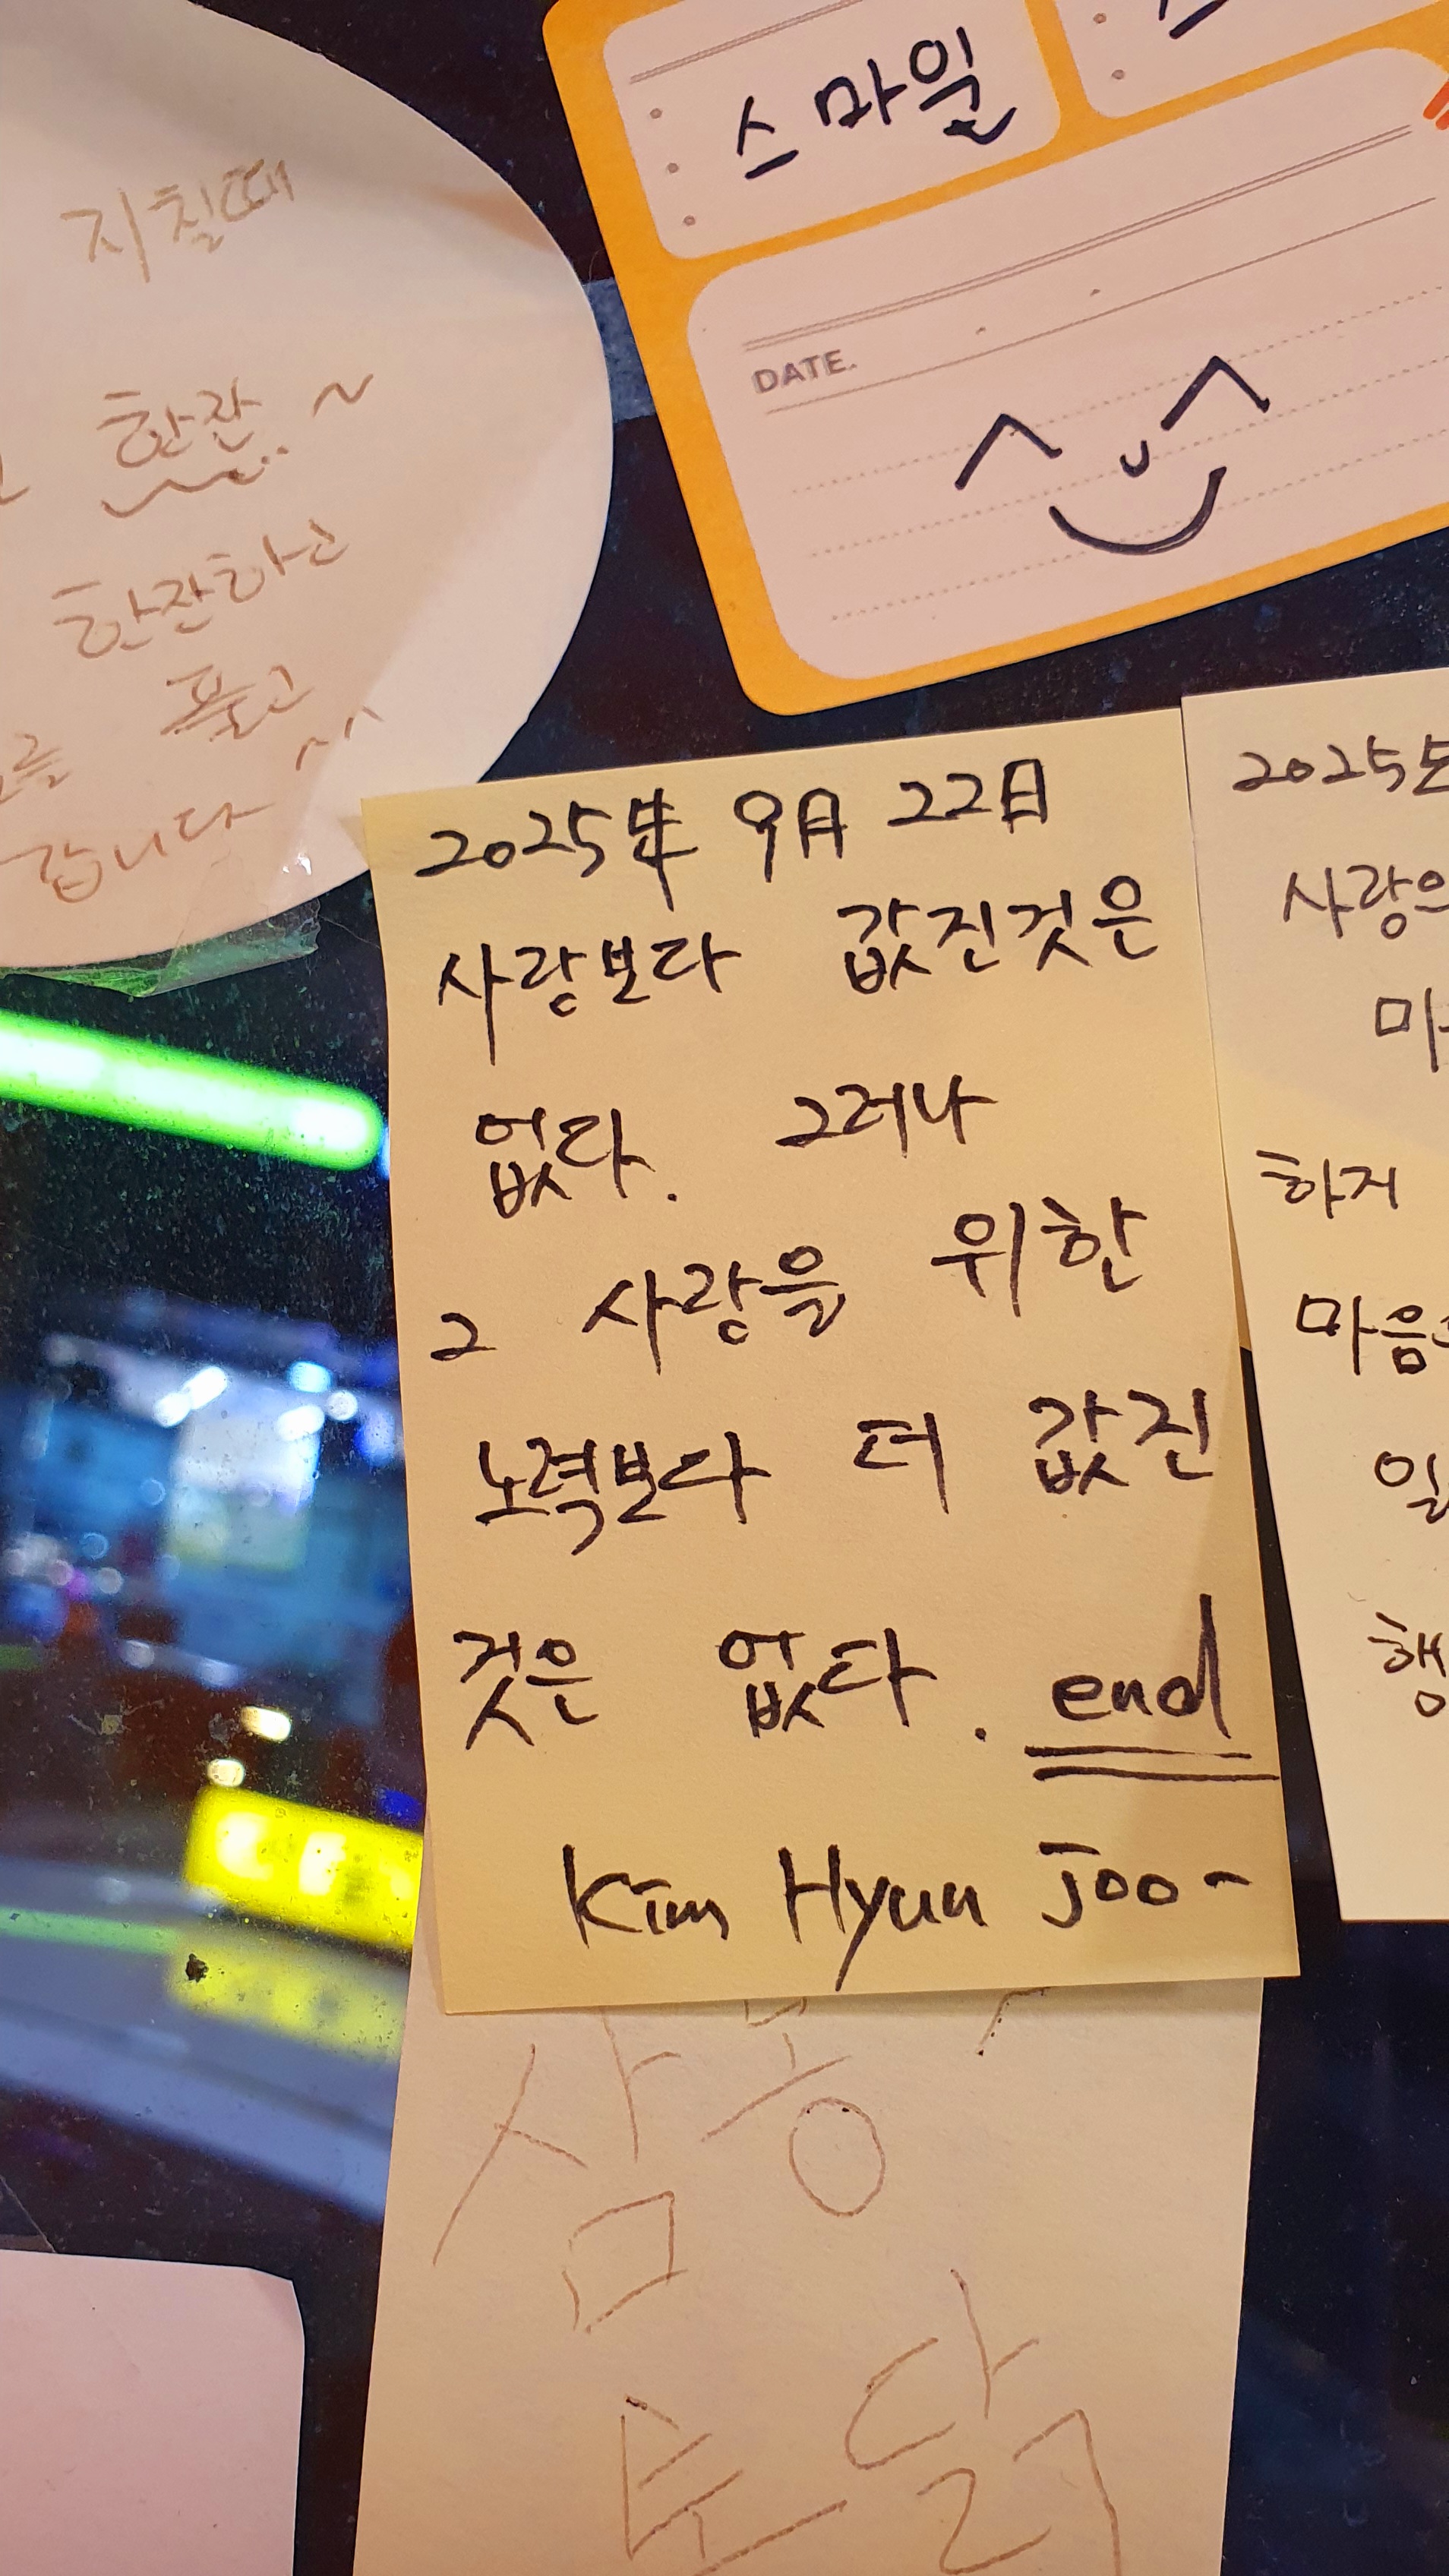 스마일
지칠때
한잔..~
한잔하고
풀고
갑니다
^^
DATE.
2025年 9月 22日
사랑보다 값진것은
없다. 그러나
그 사랑을 위한
노력보다 더 값진
것은 없다. end
Kim Hyun Joo-
2025년
사랑으
하지
마음
일
행